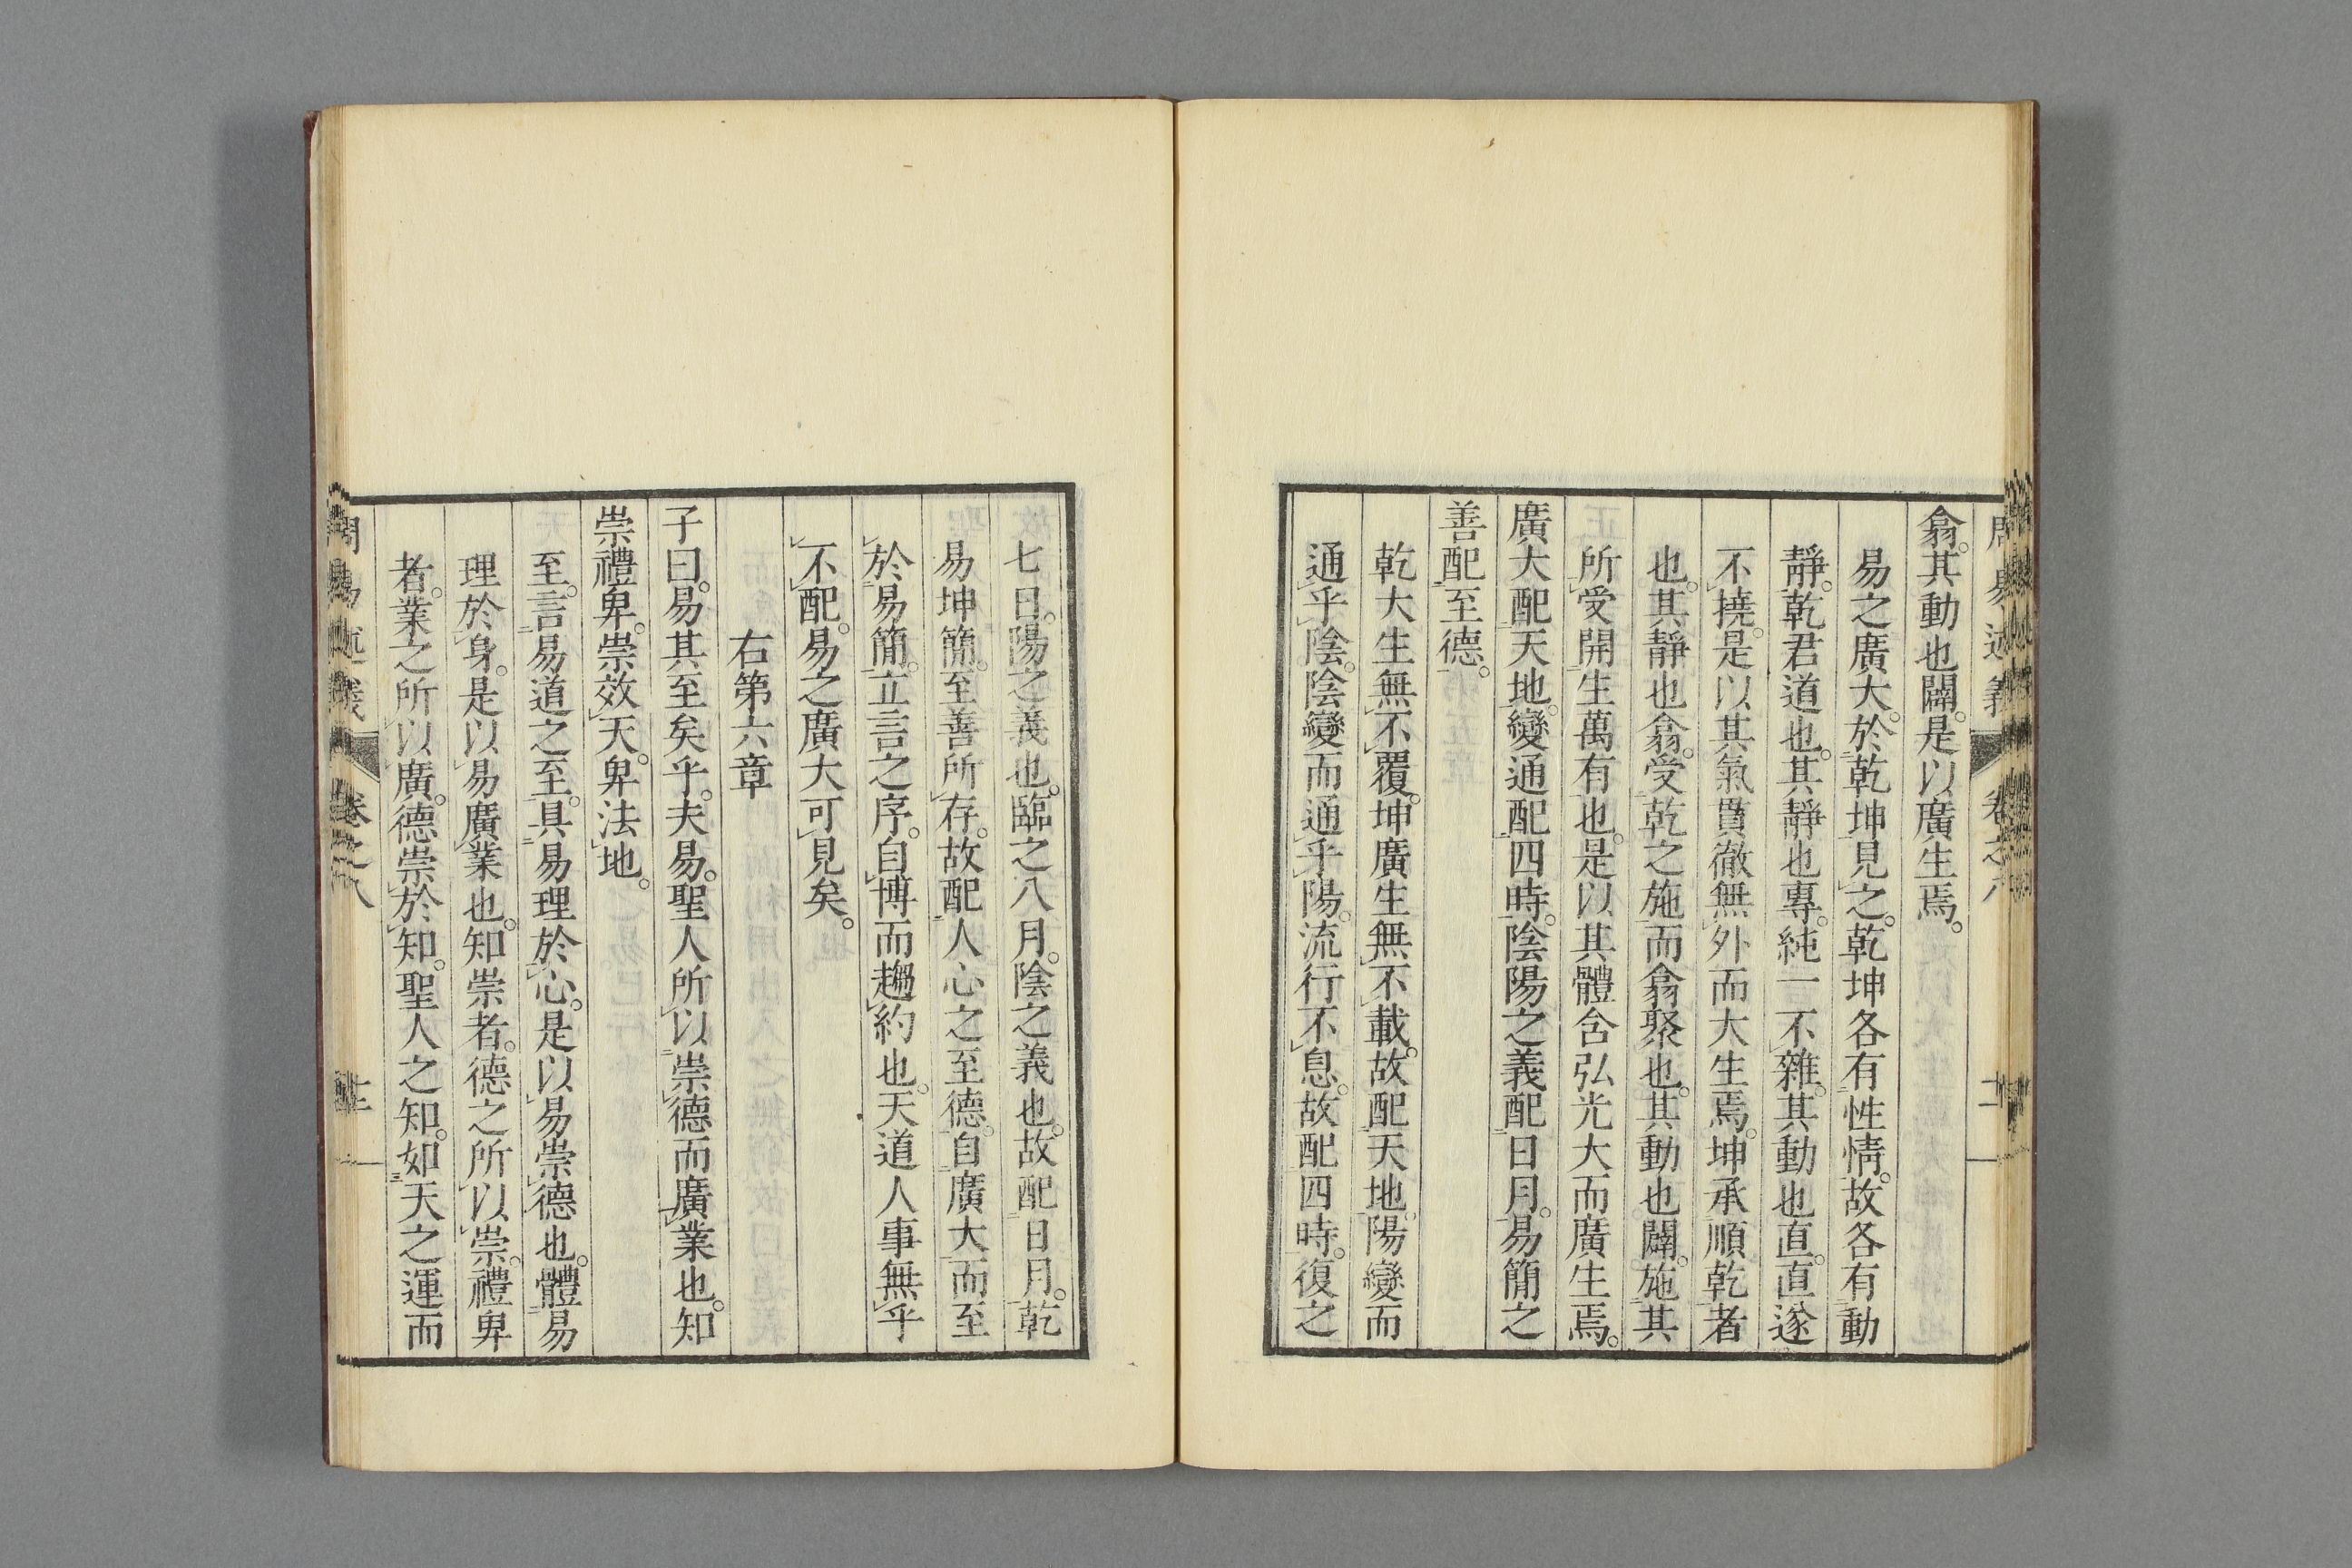 翕。其動也闢。是以廣生焉。
易之廣大。於乾坤見之。乾坤各有性情。故各有動
靜。乾君道也。其靜也專。純一不雜。其動也直。直遂
不撓。是以其氣貫徹無外而大生焉。坤承順乾者
也。其靜也翕。受乾之施而翕聚也。其動也闢。施其
所受開生萬有也。是以其體含弘光大而廣生焉。
廣大配天地。變通配四時。陰陽之義配日月。易簡之
善配至德。
乾大生無不覆。坤廣生無不載。故配天地。陽變而
通乎陰。陰變而通乎陽。流行不息。故配四時。復之
七日。陽之義也。臨之八月。陰之義也。故配日月。乾
易坤簡。至善所存。故配人心之至德。自廣大而至
於易簡。立言之序。自博而趨約也。天道人事無乎
不配。易之廣大可見矣。
右第六章
子曰。易其至矣乎。夫易。聖人所以崇德而廣業也。知
崇禮卑。崇效天。卑法地。
至。言易道之至。具易理於心。是以易崇德也。體易
理於身。是以易廣業也。知崇者。德之所以崇。禮卑
者。業之所以廣。德崇於知。聖人之知。如天之運而
周易述義 卷之八